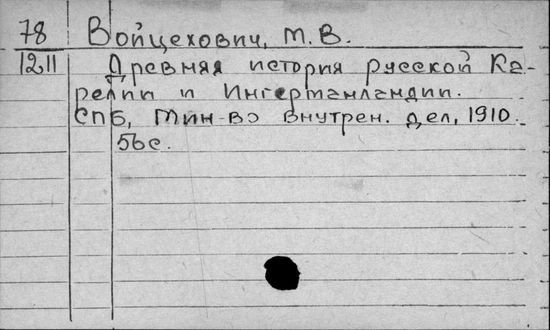 78 Войцехович, М. В.
1211 Древняя история русской Ка-
релии и Ингерманландии.
СПб, Мин-во внутрен. дел, 1910.
56с.